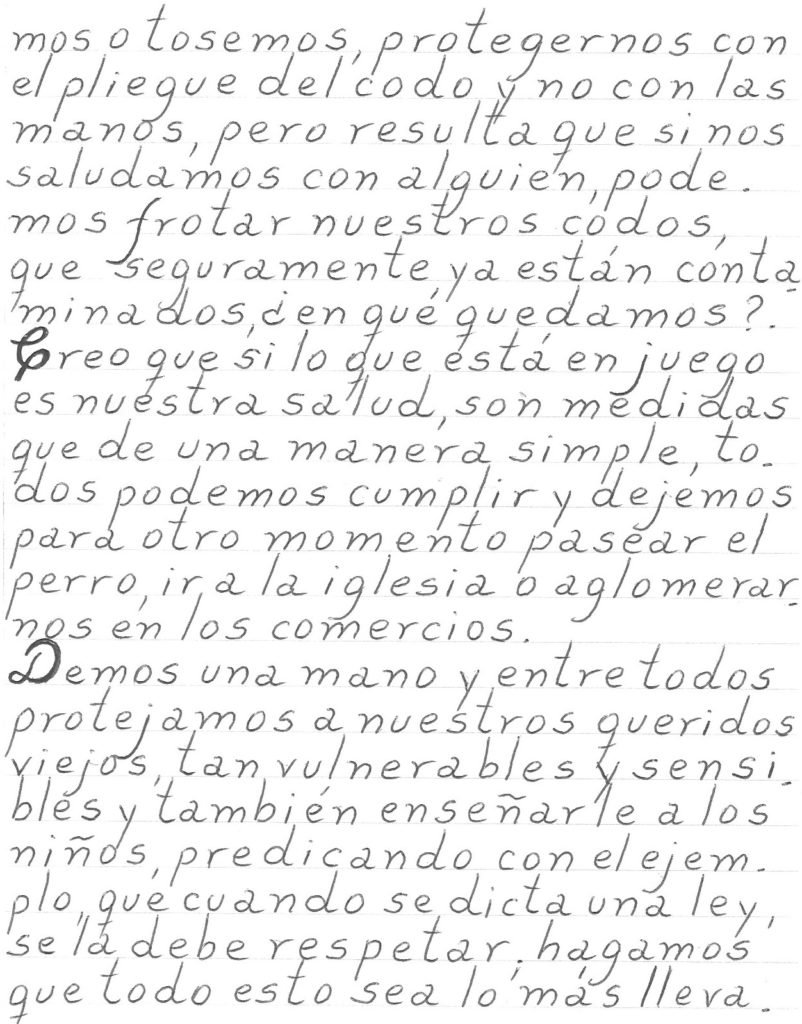 mos o tosemos, protegernos con
el pliegue del codo y no con las
manos, pero resulta que si nos
saludamos con alguien, pode-
mos frotar nuestros codos,
que seguramente ya están conta-
minados, ¿en qué quedamos?.
Creo que si lo que está en juego
es nuestra salud, son medidas
que de una manera simple, to-
dos podemos cumplir y dejemos
para otro momento pasear el
perro, ir a la iglesia o aglomerar-
nos en los comercios.
Demos una mano y entre todos
protejamos a nuestros queridos
viejos, tan vulnerables y sensi-
bles y también enseñarle a los
niños, predicando con el ejem-
plo, que cuando se dicta una ley,
se la debe respetar. hagamos
que todo esto sea lo más lleva-